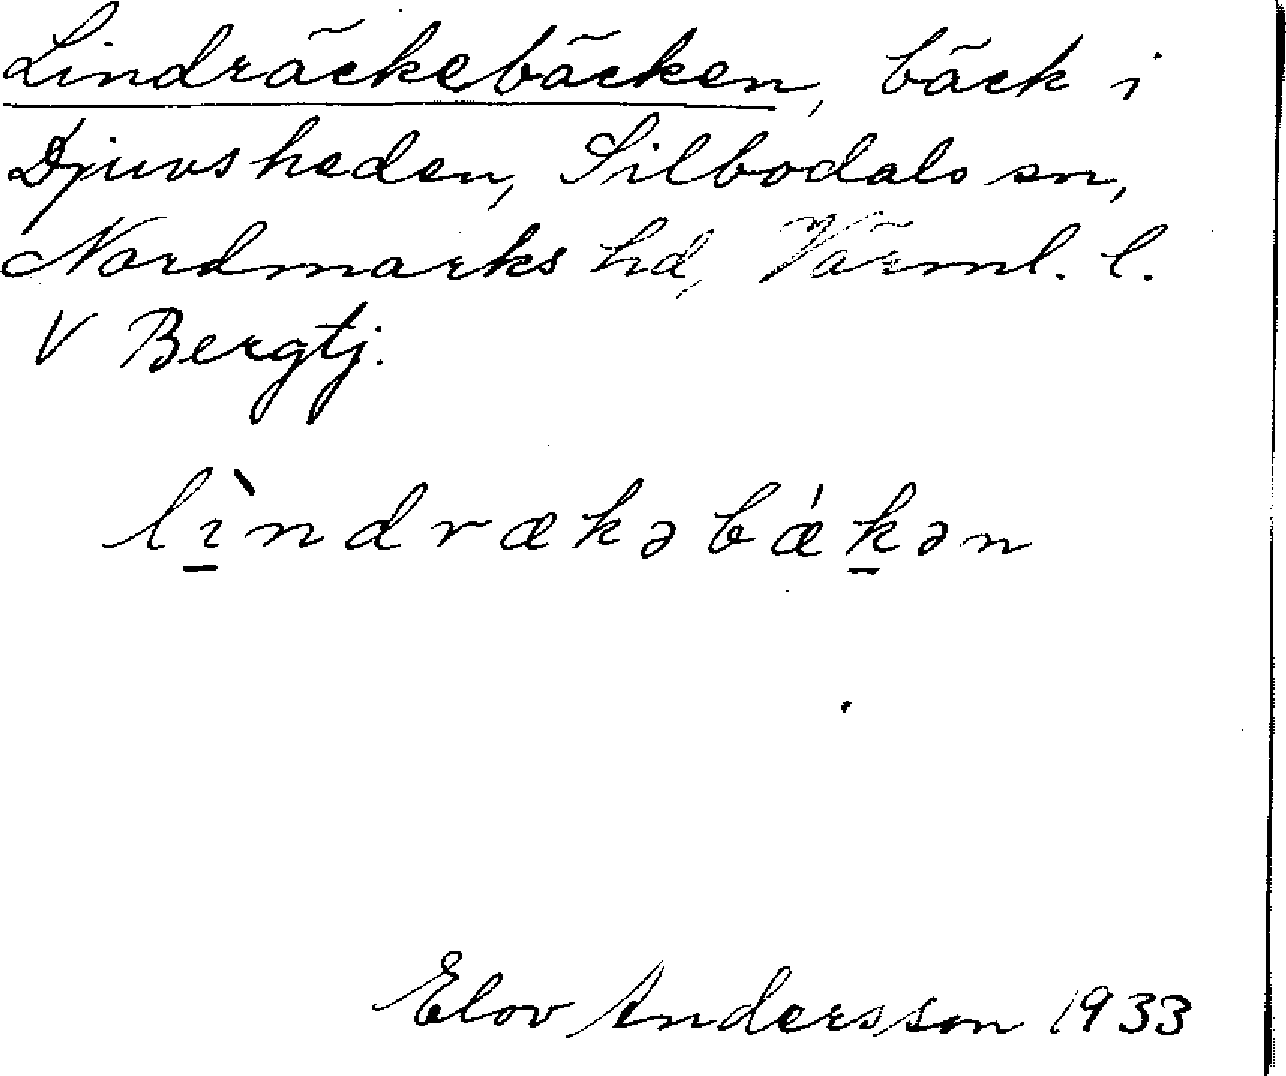 Lindräckebäcken, bäck i
Djuvsheden, Silbodals sn,
Nordmarks hd, Värml. l.
V Bergtj.
lı̲̀ndrækəbǽk̲ən
Elov Andersson 1933